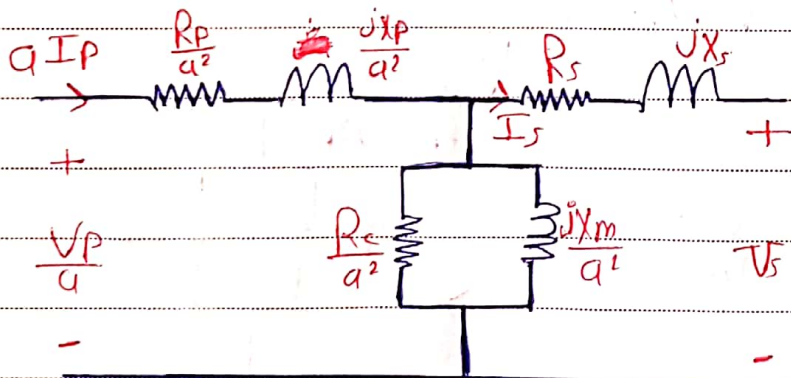 aIp
Rp/a²
jxp/a²
Rs
jXs
Is
+
+
Vp/a
Rc/a²
jXm/a²
Vs
-
-